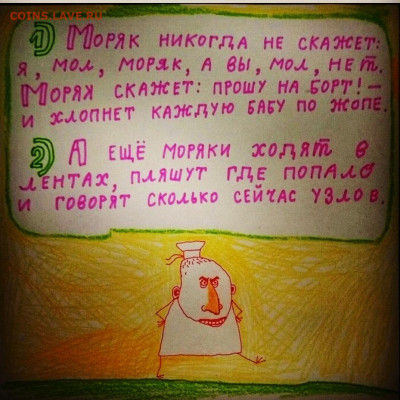 COINS.LAVE.RU
1) Моряк никогда не скажет:
я, мол, моряк, а вы, мол, нет.
Моряк скажет: прошу на борт! –
и хлопнет каждую бабу по жопе.
2) А ещё моряки ходят в
лентах, пляшут где попало
и говорят сколько сейчас узлов.